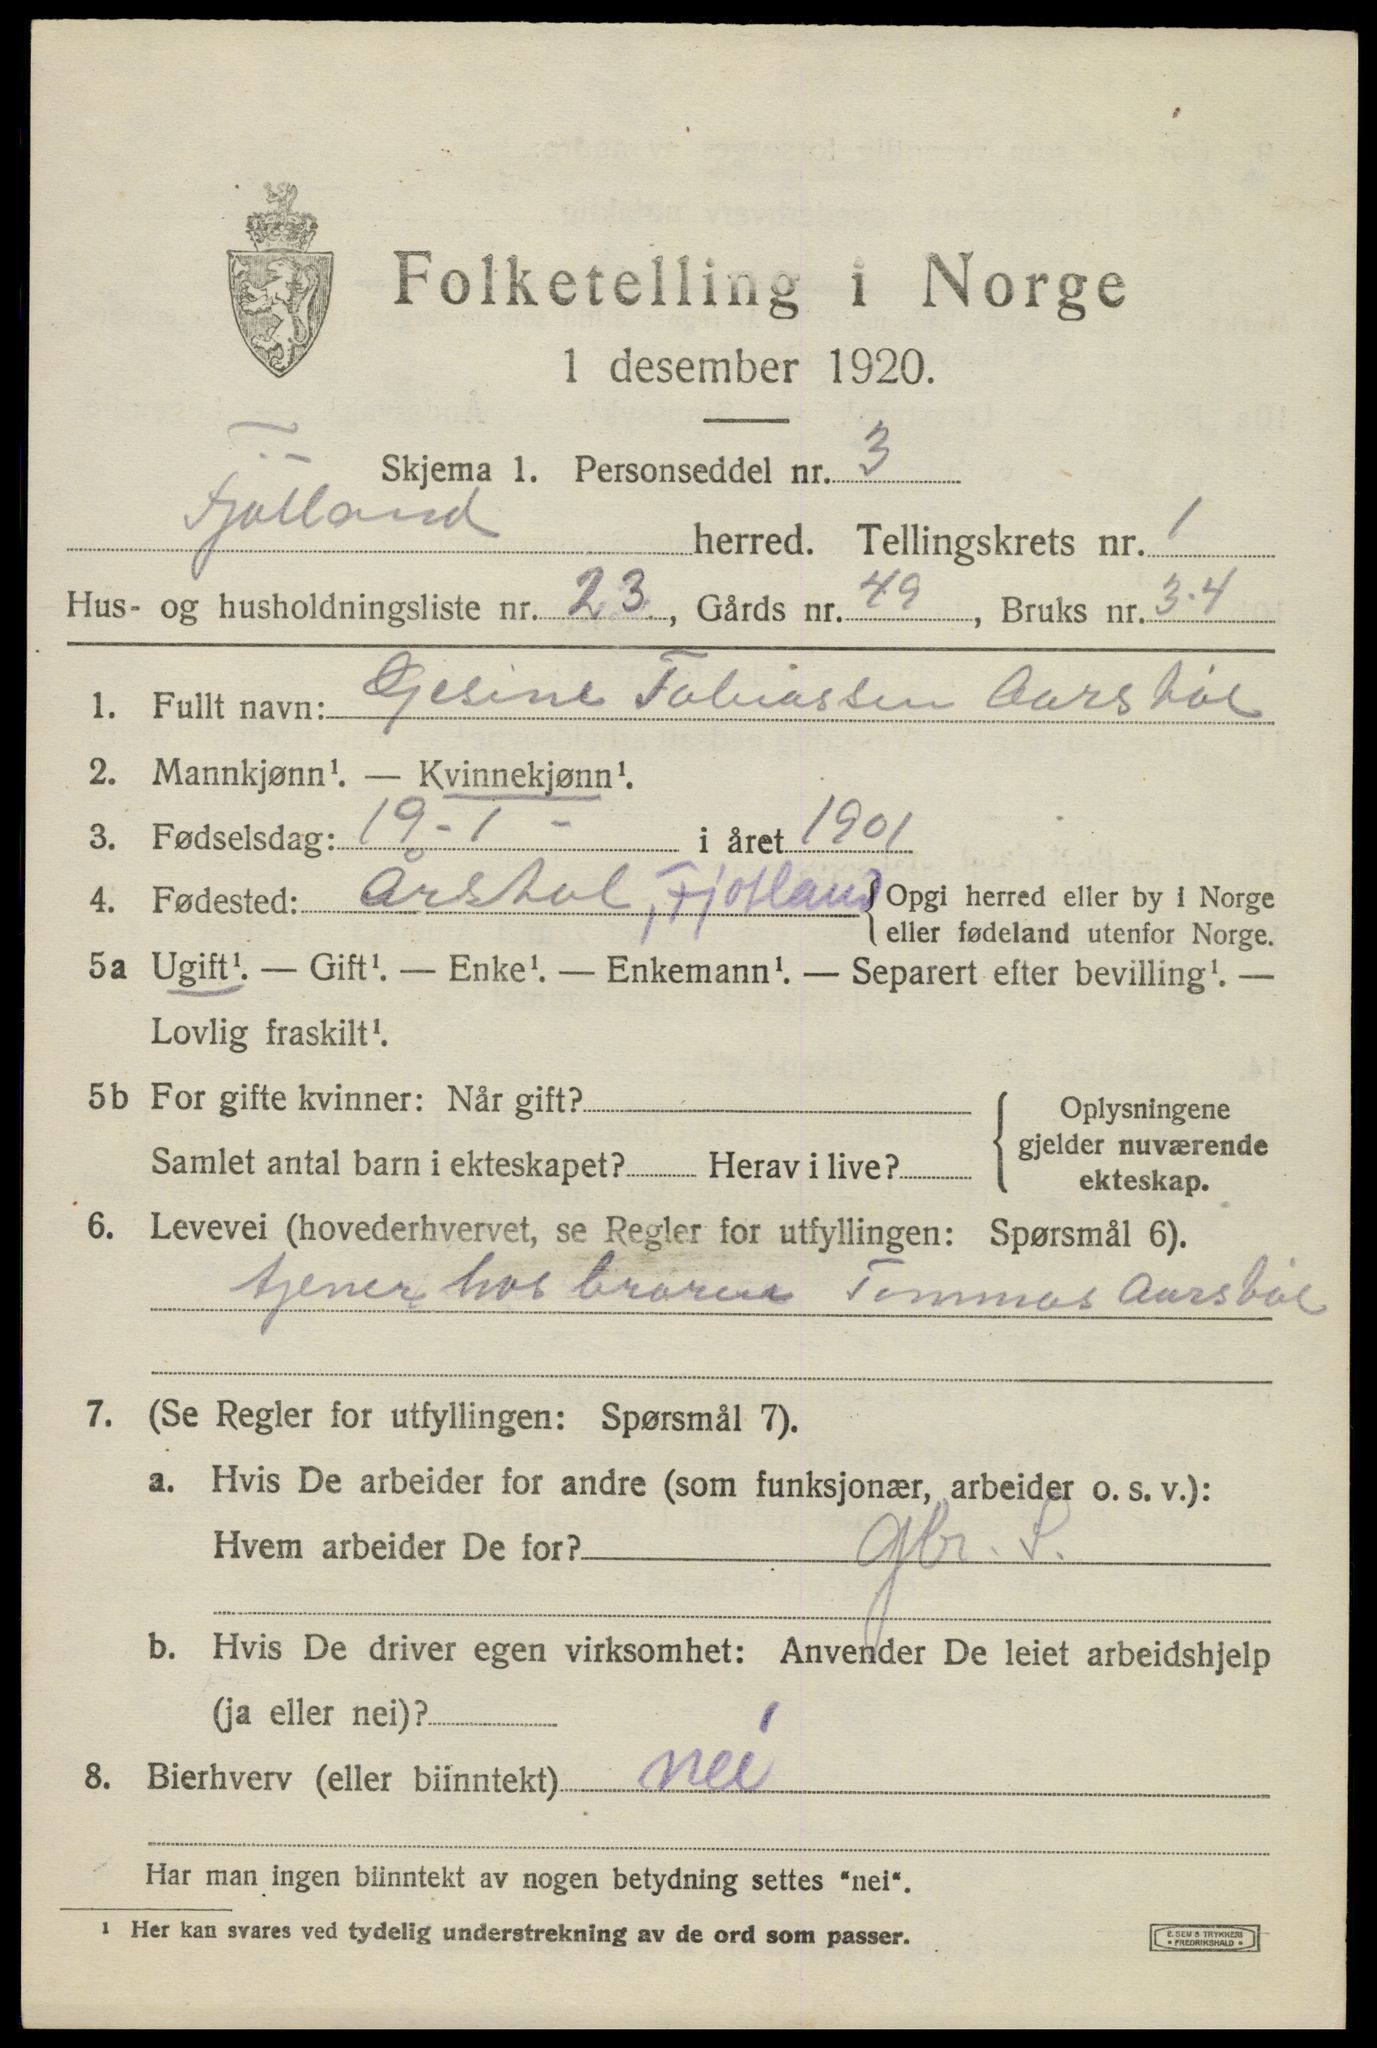 Folketelling i Norge
1 desember 1920.
Skjema 1. Personseddel nr. 3
Fjotland herred. Tellingskrets nr. 1
Hus- og husholdningsliste nr. 23, Gårds nr. 49, Bruks nr. 3.4
1. Fullt navn: Gjesine Tobiassen Aarstøl
2. Mannkjønn¹. — Kvinnekjønn¹.
3. Fødselsdag: 19 - 1 - i året 1901
4. Fødested: Årstøl, Fjotland { Opgi herred eller by i Norge
eller fødeland utenfor Norge.
5a Ugift¹. — Gift¹. — Enke¹. — Enkemann¹. — Separert efter bevilling¹. —
Lovlig fraskilt¹.
5b For gifte kvinner: Når gift?
Samlet antal barn i ekteskapet? Herav i live?
{ Oplysningene
gjelder nuværende
ekteskap.
6. Levevei (hovederhvervet, se Regler for utfyllingen: Spørsmål 6).
tjener hos broren Tommas Aarstøl
7. (Se Regler for utfyllingen: Spørsmål 7).
a. Hvis De arbeider for andre (som funksjonær, arbeider o. s. v.):
Hvem arbeider De for? gbr. S.
b. Hvis De driver egen virksomhet: Anvender De leiet arbeidshjelp
(ja eller nei)?
8. Bierhverv (eller biinntekt) nei
Har man ingen biinntekt av nogen betydning settes "nei".
¹ Her kan svares ved tydelig understrekning av de ord som passer.
E. SEM'S TRYKKERI
• FREDRIKSHALD •